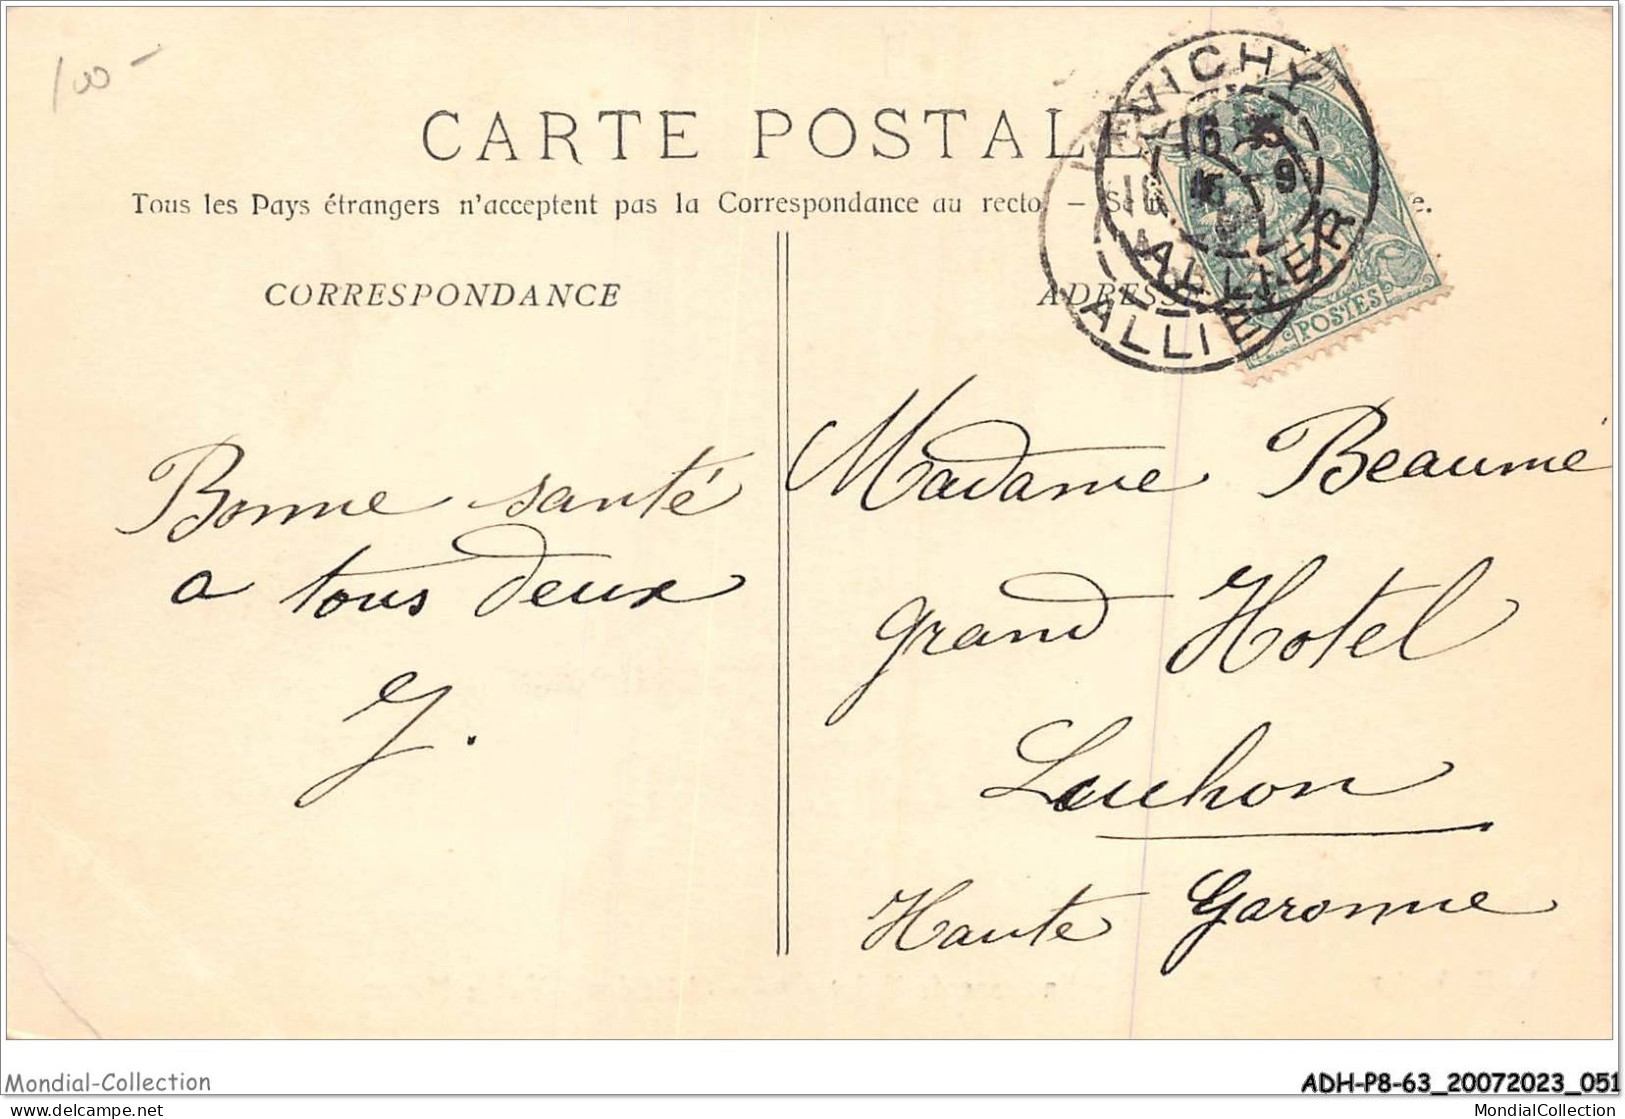 100 -
CARTE POSTALE
Tous les Pays étrangers n'acceptent pas la Correspondance au recto. –
CORRESPONDANCE
ADRESSE
VICHY
ALLIER
ALLIER
POSTES
Bonne santé
a tous deux
J.
Madame Beaumé
grand Hotel
Luchon
Haute Garonne
Mondial-Collection
ADH-P8-63_20072023_051
delcampe.net
MondialCollection